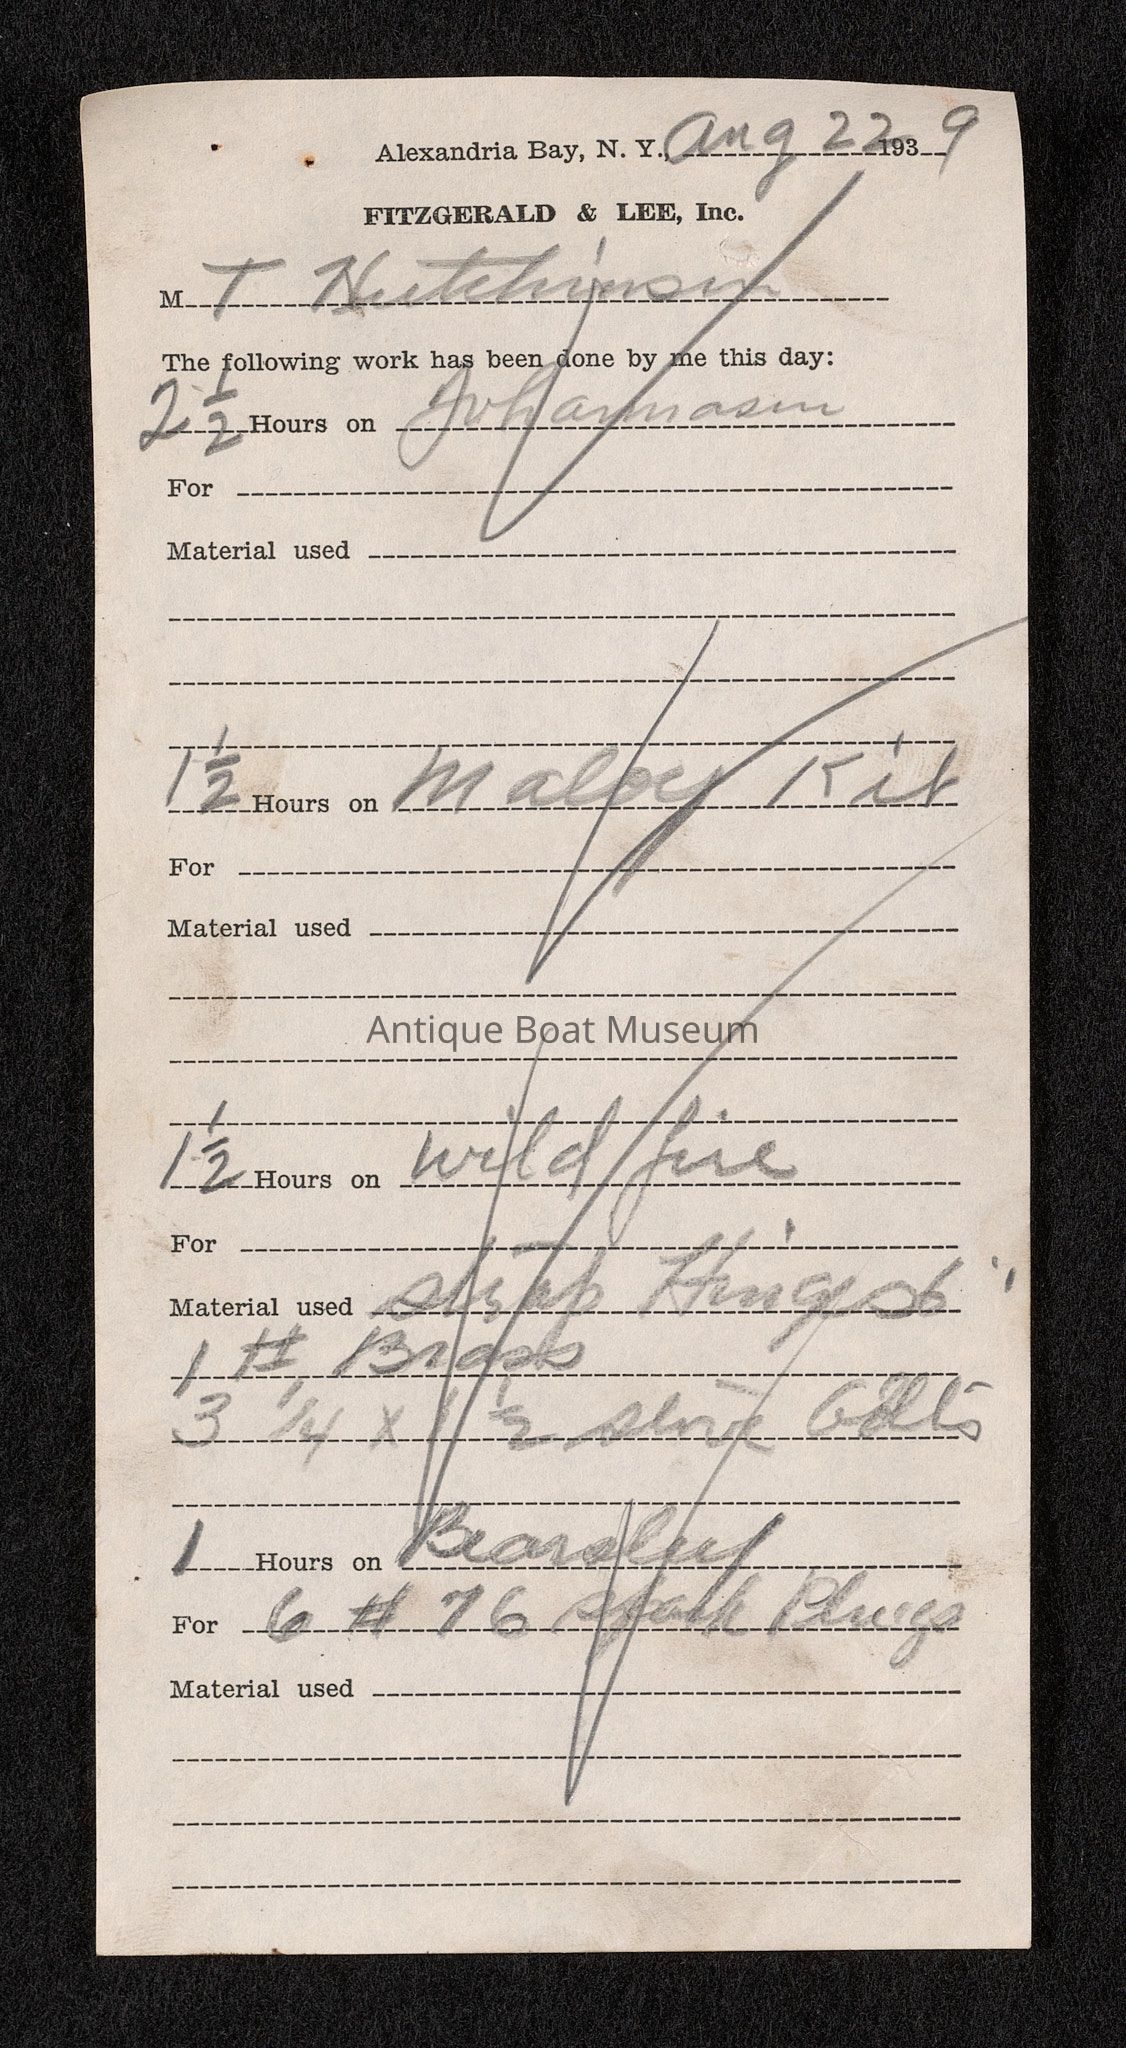 Alexandria Bay, N. Y., Aug 22 1939
FITZGERALD & LEE, Inc.
M T Hutchinson
The following work has been done by me this day:
2 1/2 Hours on Johannasen
For
Material used
1 1/2 Hours on Maloy Kit
For
Material used
Antique Boat Museum
1 1/2 Hours on wild fire
For
Material used strap Hinges
1 # Brass
3 1/4 x 1 1/2 stove bolts
1 Hours on Bearsley
For 6 # 76 spark Plugs
Material used